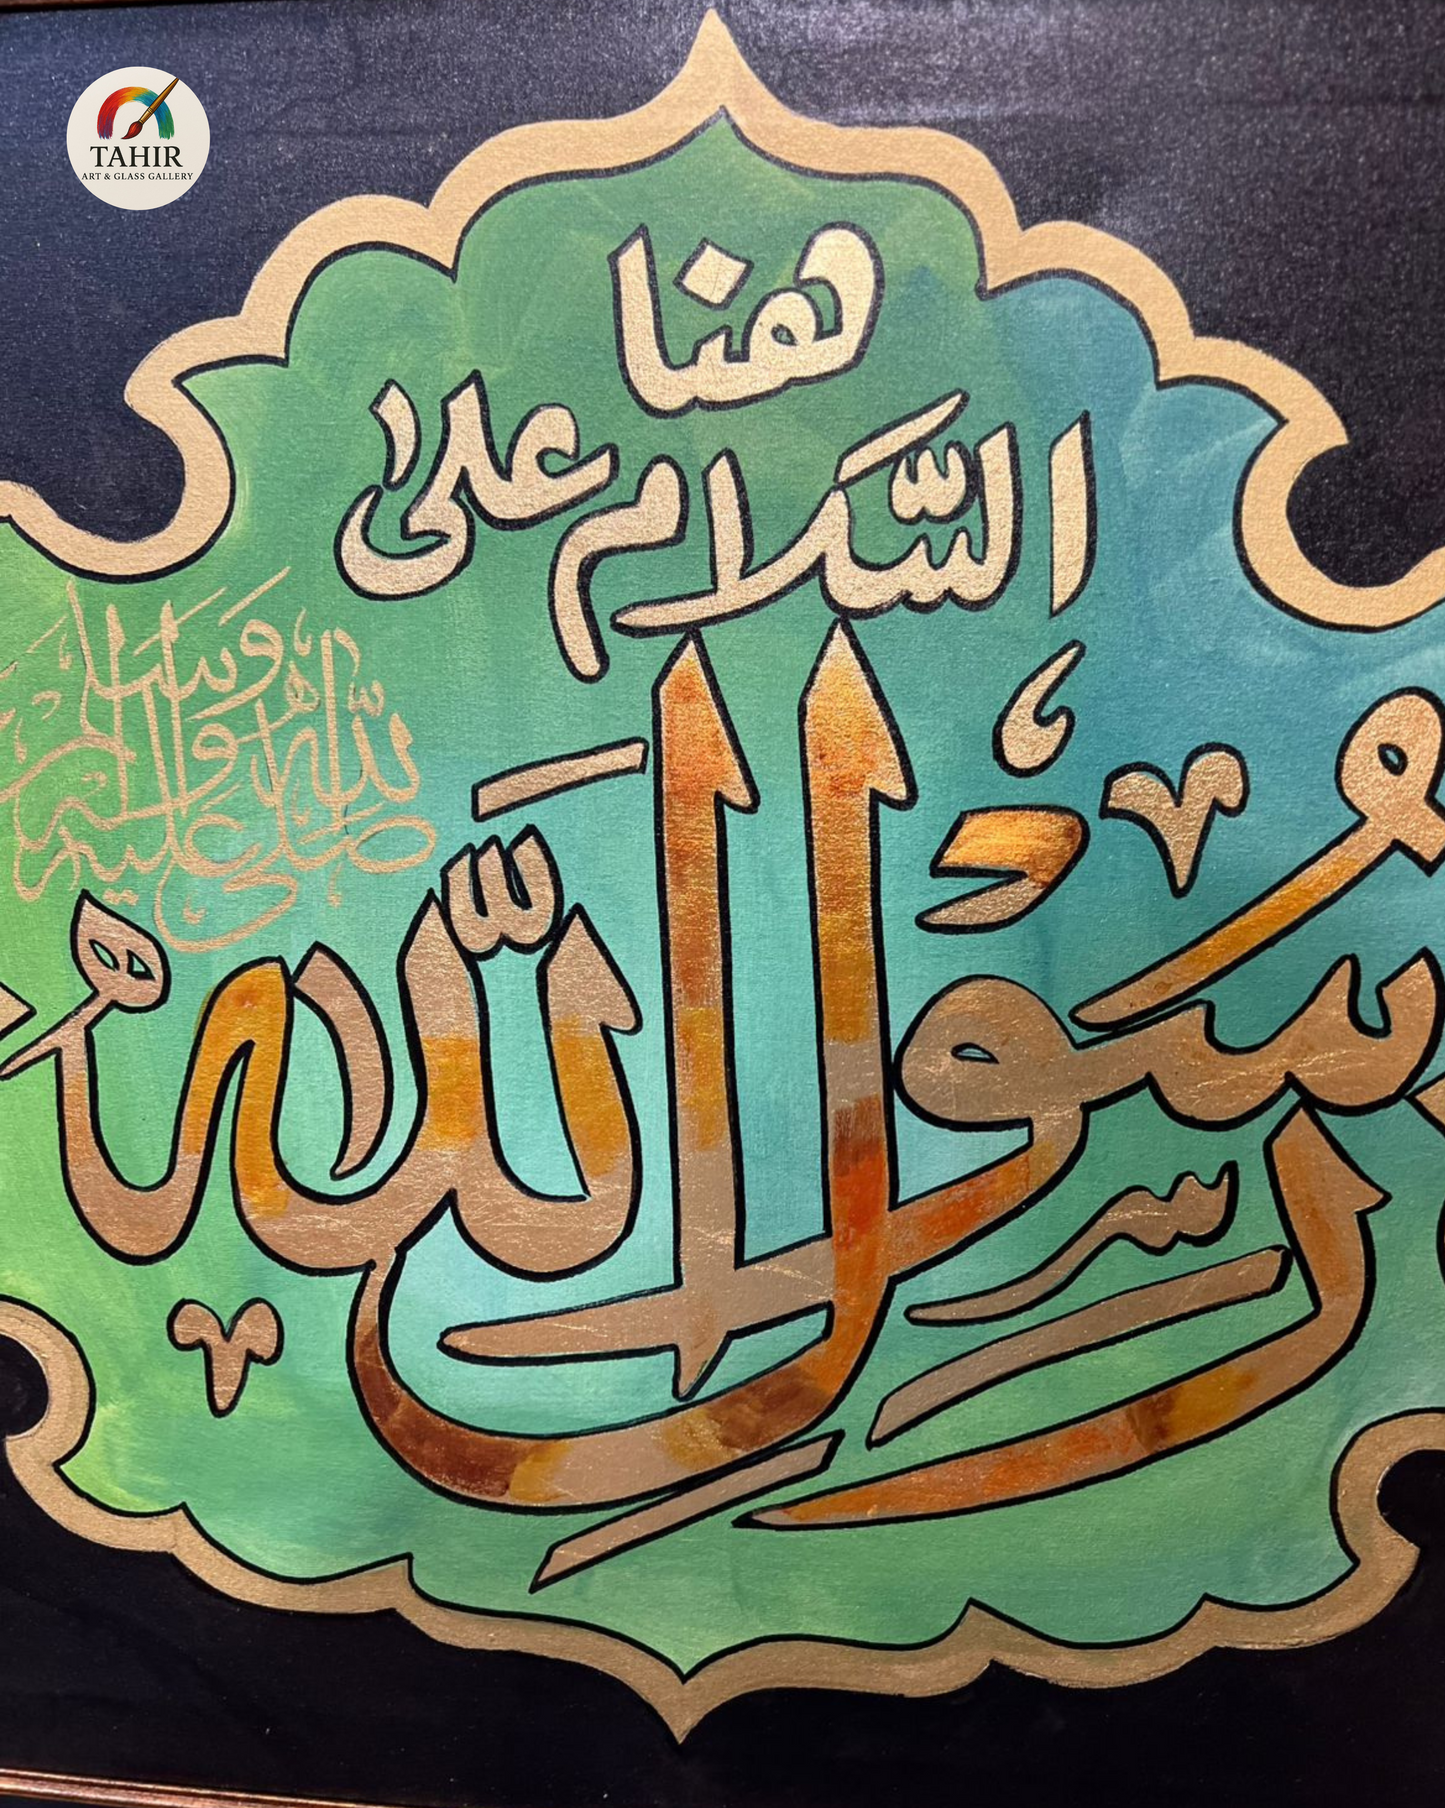 TAHIR
ART & GLASS GALLERY
هنا
السَّلام على
رسول الله
صلى الله عليه وآله وسلم